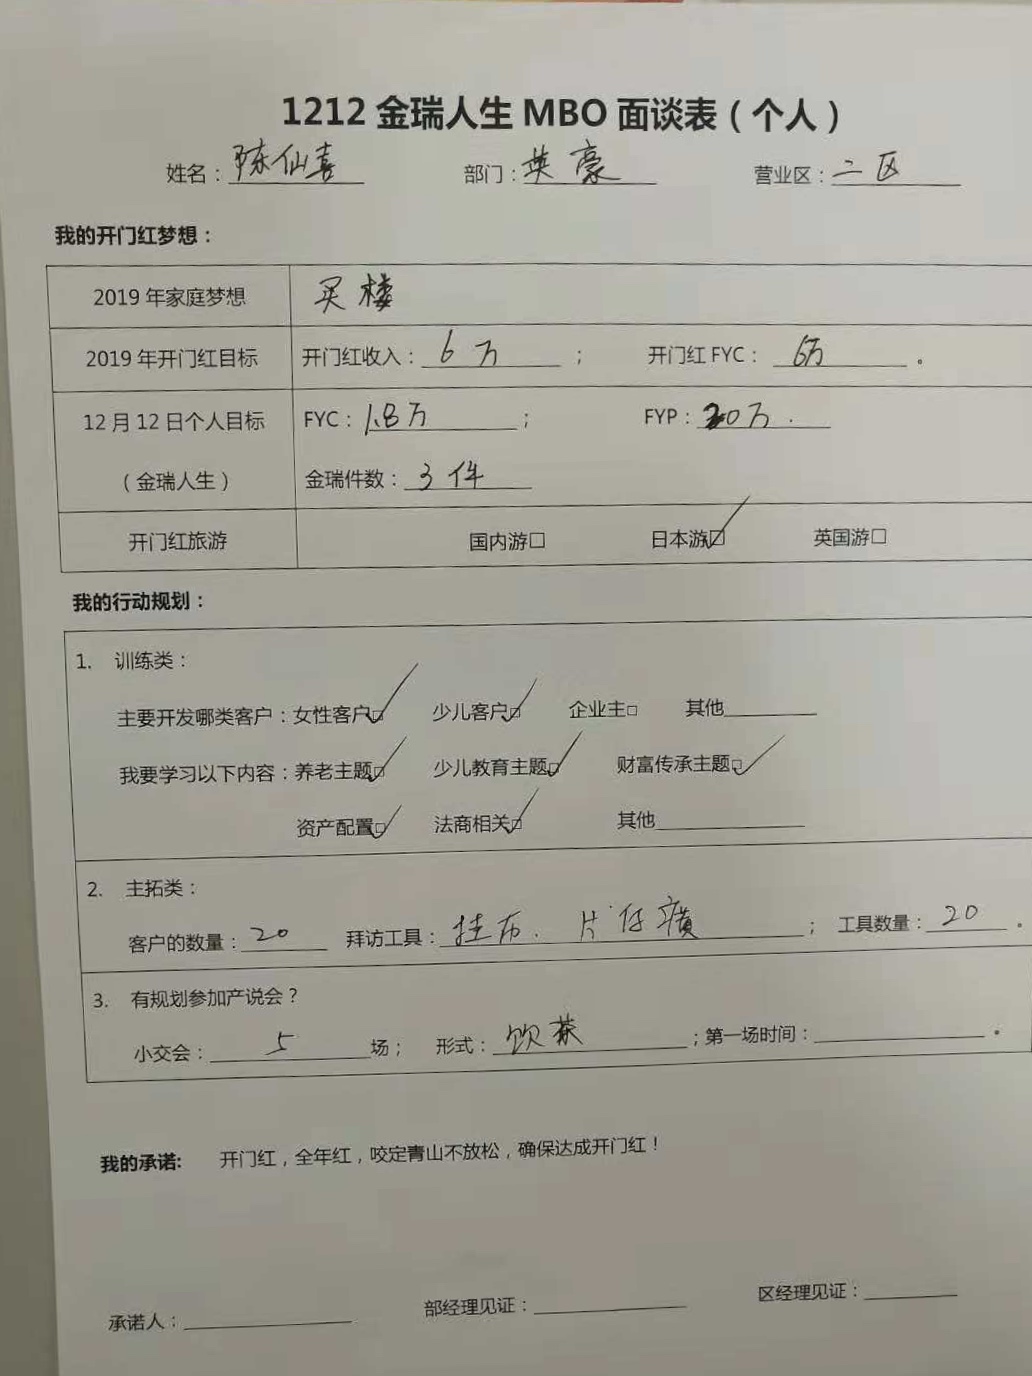 1212 金瑞人生 MBO 面谈表（个人）
姓名：陈仙喜 部门：英豪 营业区：二区
我的开门红梦想：
2019 年家庭梦想 买楼
2019 年开门红目标 开门红收入：6万； 开门红 FYC：6万。
12 月 12 日个人目标 FYC：1.8万； FYP：20万.
（金瑞人生） 金瑞件数：3件
开门红旅游 国内游□ 日本游☑ 英国游□
我的行动规划：
1. 训练类：
主要开发哪类客户：女性客户☑ 少儿客户☑ 企业主□ 其他
我要学习以下内容：养老主题☑ 少儿教育主题☑ 财富传承主题☑
资产配置☑ 法商相关☑ 其他
2. 主拓类：
客户的数量：20 拜访工具：挂历. 片仔癀； 工具数量：20。
3. 有规划参加产说会？
小交会：5场； 形式：饮茶；第一场时间：。
我的承诺: 开门红，全年红，咬定青山不放松，确保达成开门红！
承诺人： 部经理见证： 区经理见证：